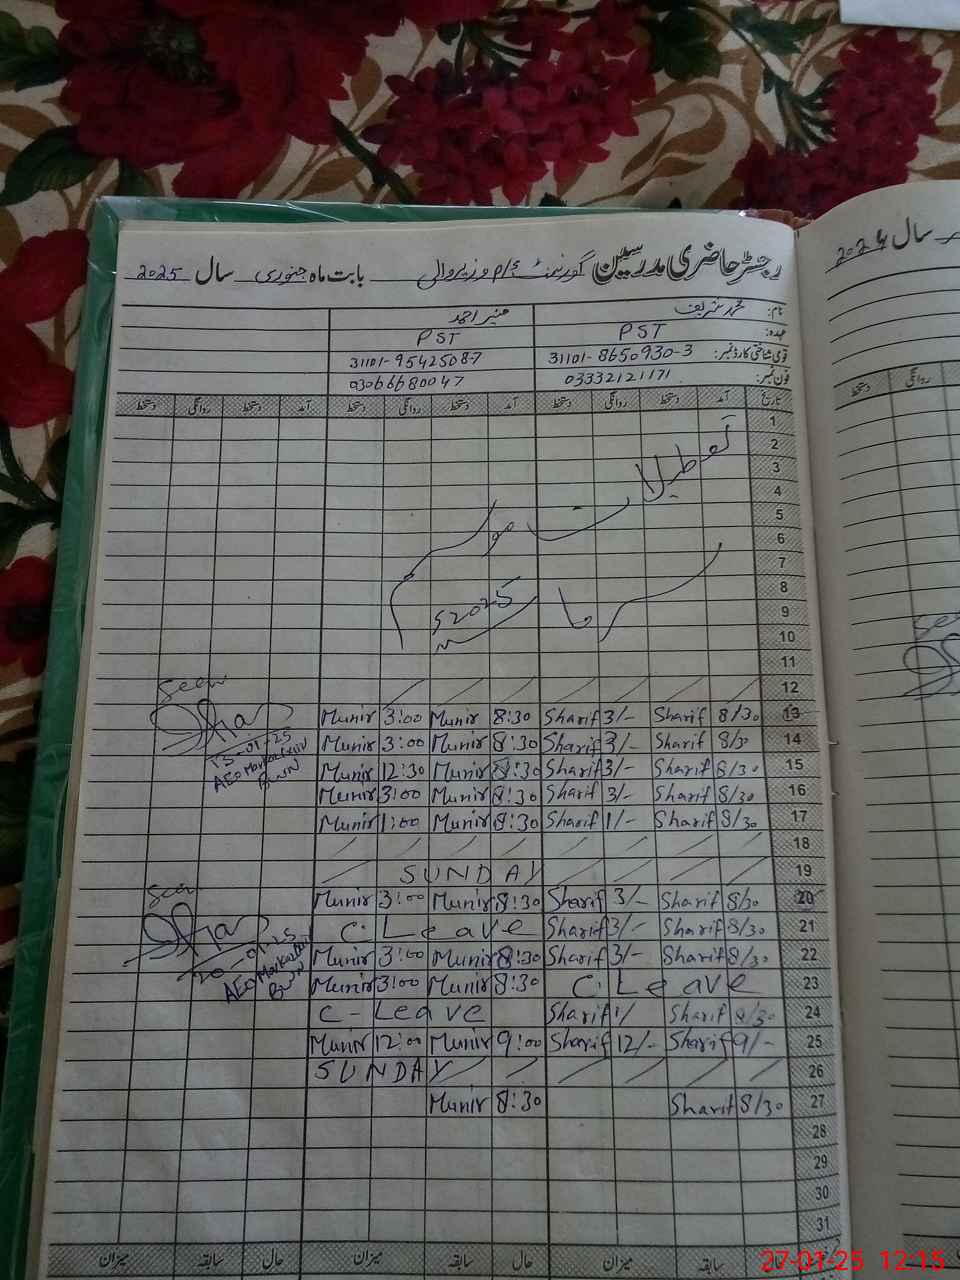 رجسٹر حاضری مدرسین گورنمنٹ بابت ماہ جنوری سال 2025
نام: محمد شریف منیر احمد
عہدہ: PST PST
قومی شناختی کارڈ نمبر: 31101-8650930-3 31101-9542508-7
فون نمبر: 03332121171 03066680047
تاریخ آمد دستخط روانگی دستخط آمد دستخط روانگی دستخط آمد دستخط روانگی دستخط
1
2
3
4
5
6
7
8
9
10
11
تعطیلات موسم
سرما 2025
12
Seen
Munir 3:00 Munir 8:30 Sharif 3/- Sharif 8/30 13
Munir 3:00 Munir 8:30 Sharif 3/- Sharif 8/30 14
15-01-25
Munir 12:30 Munir 8:30 Sharif 3/- Sharif 8/30 15
AEO Markaz
BWN
Munir 3:00 Munir 8:30 Sharif 3/- Sharif 8/30 16
Munir 1:00 Munir 8:30 Sharif 1/- Sharif 8/30 17
18
SUNDAY 19
Seen
Munir 3:00 Munir 8:30 Sharif 3/- Sharif 8/30 20
C. Leave Sharif 3/- Sharif 8/30 21
20-01-25
Munir 3:00 Munir 8:30 Sharif 3/- Sharif 8/30 22
AEO Markaz
BWN
Munir 3:00 Munir 8:30 C. Leave 23
C-Leave Sharif 1/ Sharif 8/30 24
Munir 12:00 Munir 9:00 Sharif 12/- Sharif 9/- 25
SUNDAY 26
Munir 8:30 Sharif 8/30 27
28
29
30
31
حال سابقہ میزان حال سابقہ میزان حال سابقہ میزان
سال 2026
روانگی دستخط
Seen
27-01-25 12:15